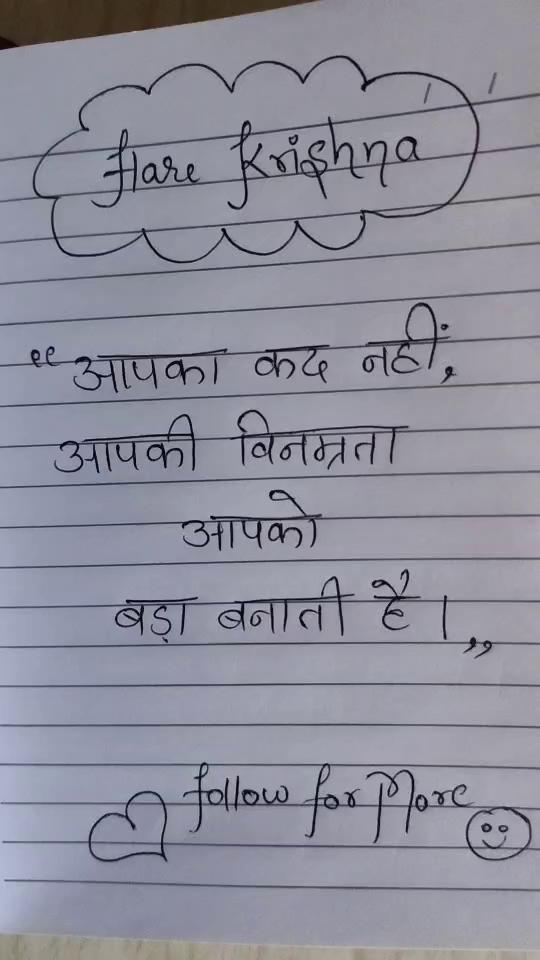 Hare Krishna
“आपका कद नहीं,
आपकी विनम्रता
आपको
बड़ा बनाती है।”
follow for More